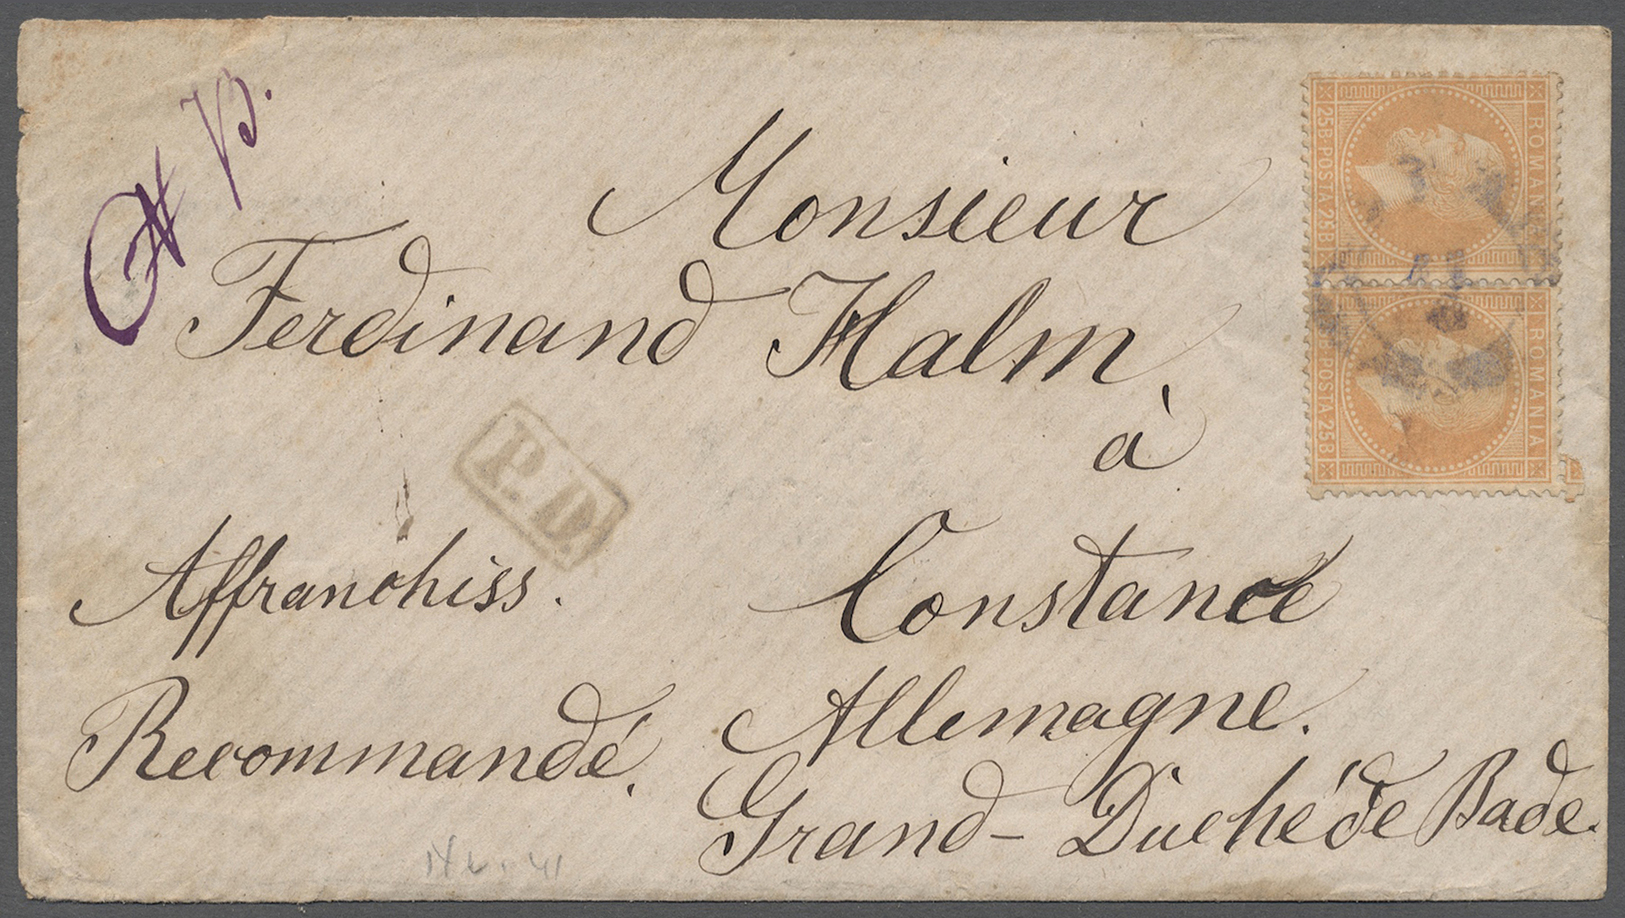 Monsieur
Ferdinand Halm,
à
Constance
Allemagne.
Grand-Duché de Bade.
Affranchiss.
Recommandé.
P.D.
ROMANIA
25B·POSTA·25B
ROMANIA
POSTA·25B